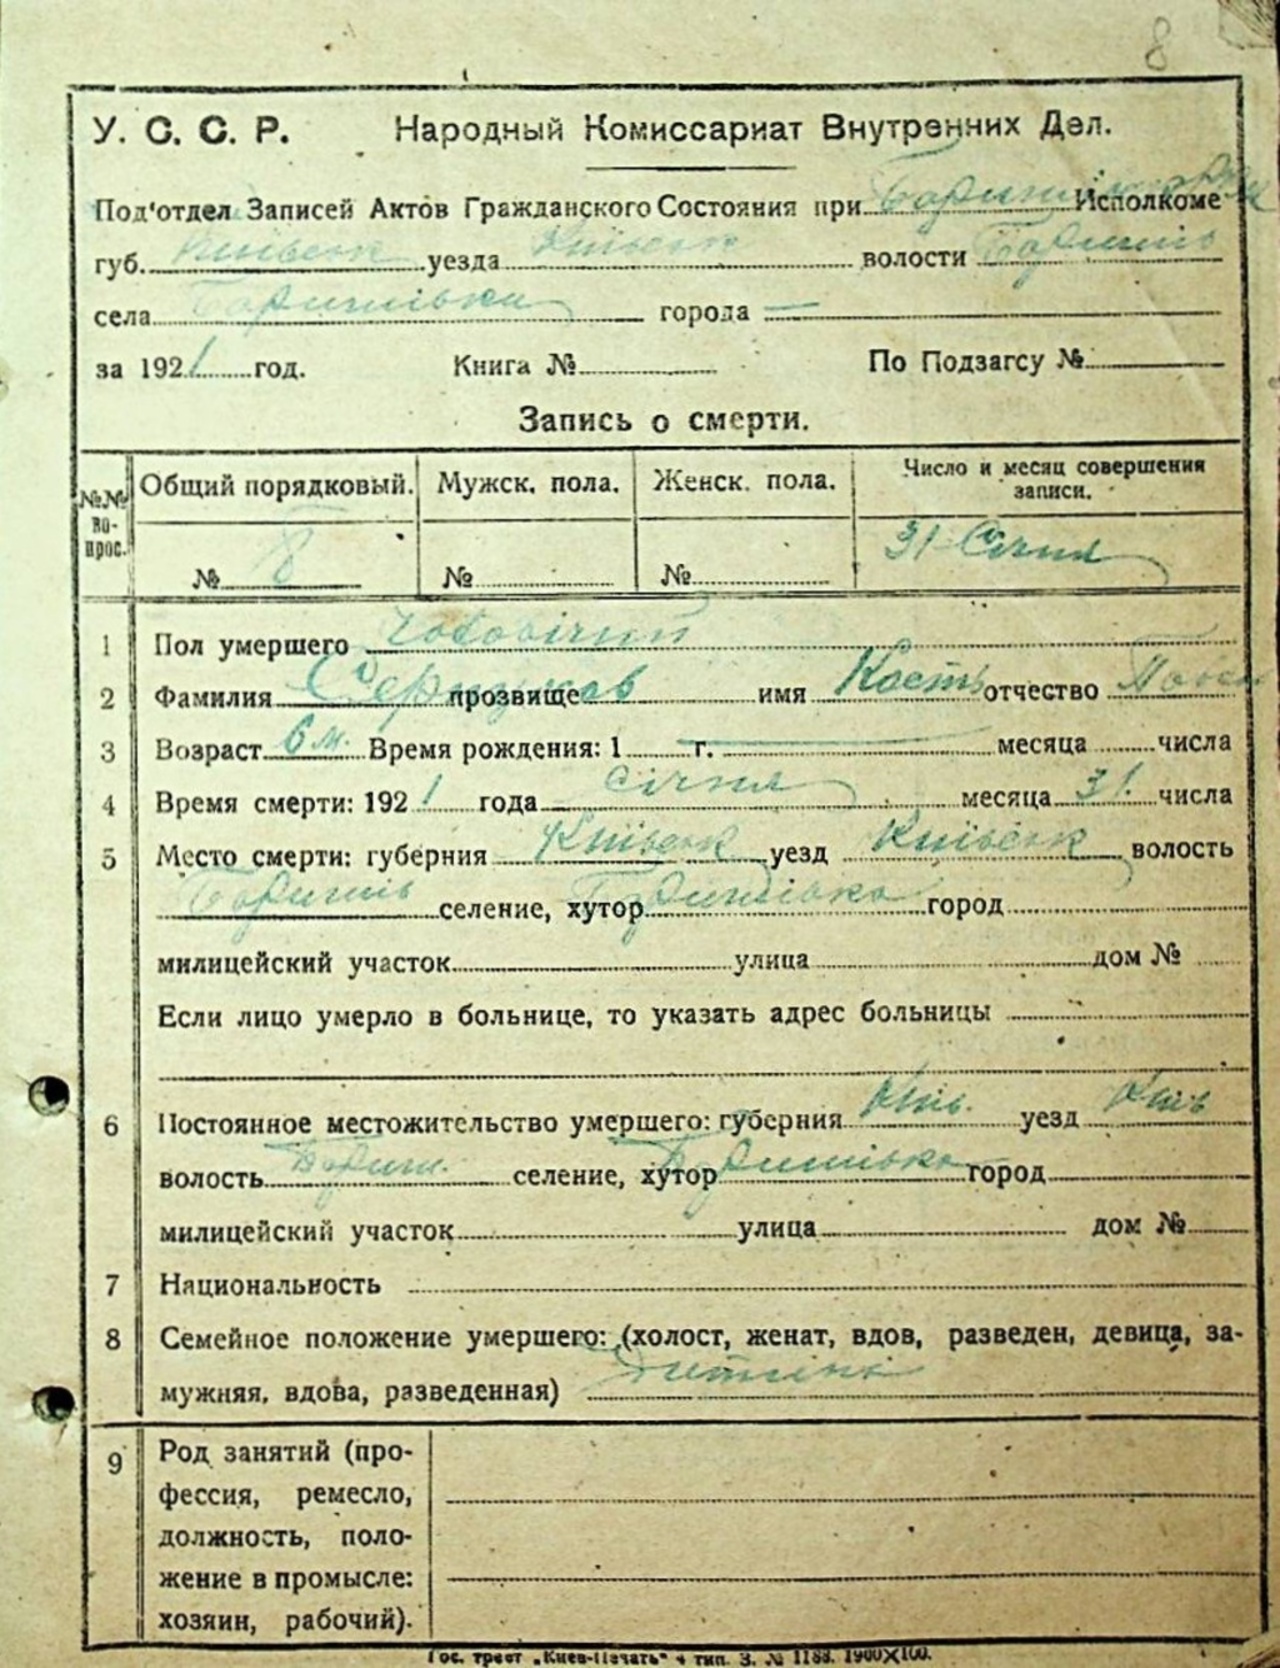 8
У. С. С. Р. Народный Комиссариат Внутренних Дел.
Под'отдел Записей Актов Гражданского Состояния при Исполкоме
губ. Київськ уезда Київськ волости Баришп
села Баришівки города —
за 1921 год. Книга № По Подзагсу №
Запись о смерти.
№№ вопрос. Общий порядковый. Мужск. пола. Женск. пола. Число и месяц совершения записи.
№ 8 № № 31 Січня
1 Пол умершего Чоловічий
2 Фамилия прозвище имя Кость отчество
3 Возраст 6 м. Время рождения: 1 г. месяца числа
4 Время смерти: 1921 года січня месяца 31 числа
5 Место смерти: губерния Київськ уезд Київськ волость
Баришп селение, хутор Баришівка город
милицейский участок улица дом №
Если лицо умерло в больнице, то указать адрес больницы
6 Постоянное местожительство умершего: губерния Київ. уезд Київ
волость Бариш. селение, хутор Баришівка город
милицейский участок улица дом №
7 Национальность
8 Семейное положение умершего: (холост, женат, вдов, разведен, девица, за-
мужняя, вдова, разведенная) Дитина
9 Род занятий (про-
фессия, ремесло,
должность, поло-
жение в промысле:
хозяин, рабочий).
Гос. трест „Киев-Печать" 4 тип. З. № 1188. 1900Х100.